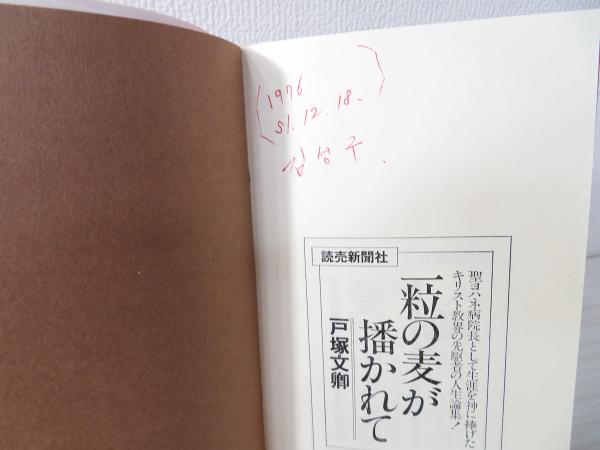 1976
51. 12. 18.
김성구.
読売新聞社
聖ヨハネ病院長として生涯を神に捧げた
キリスト教界の先駆者の人生論集!
一粒の麦が
播かれて
戸塚文卿